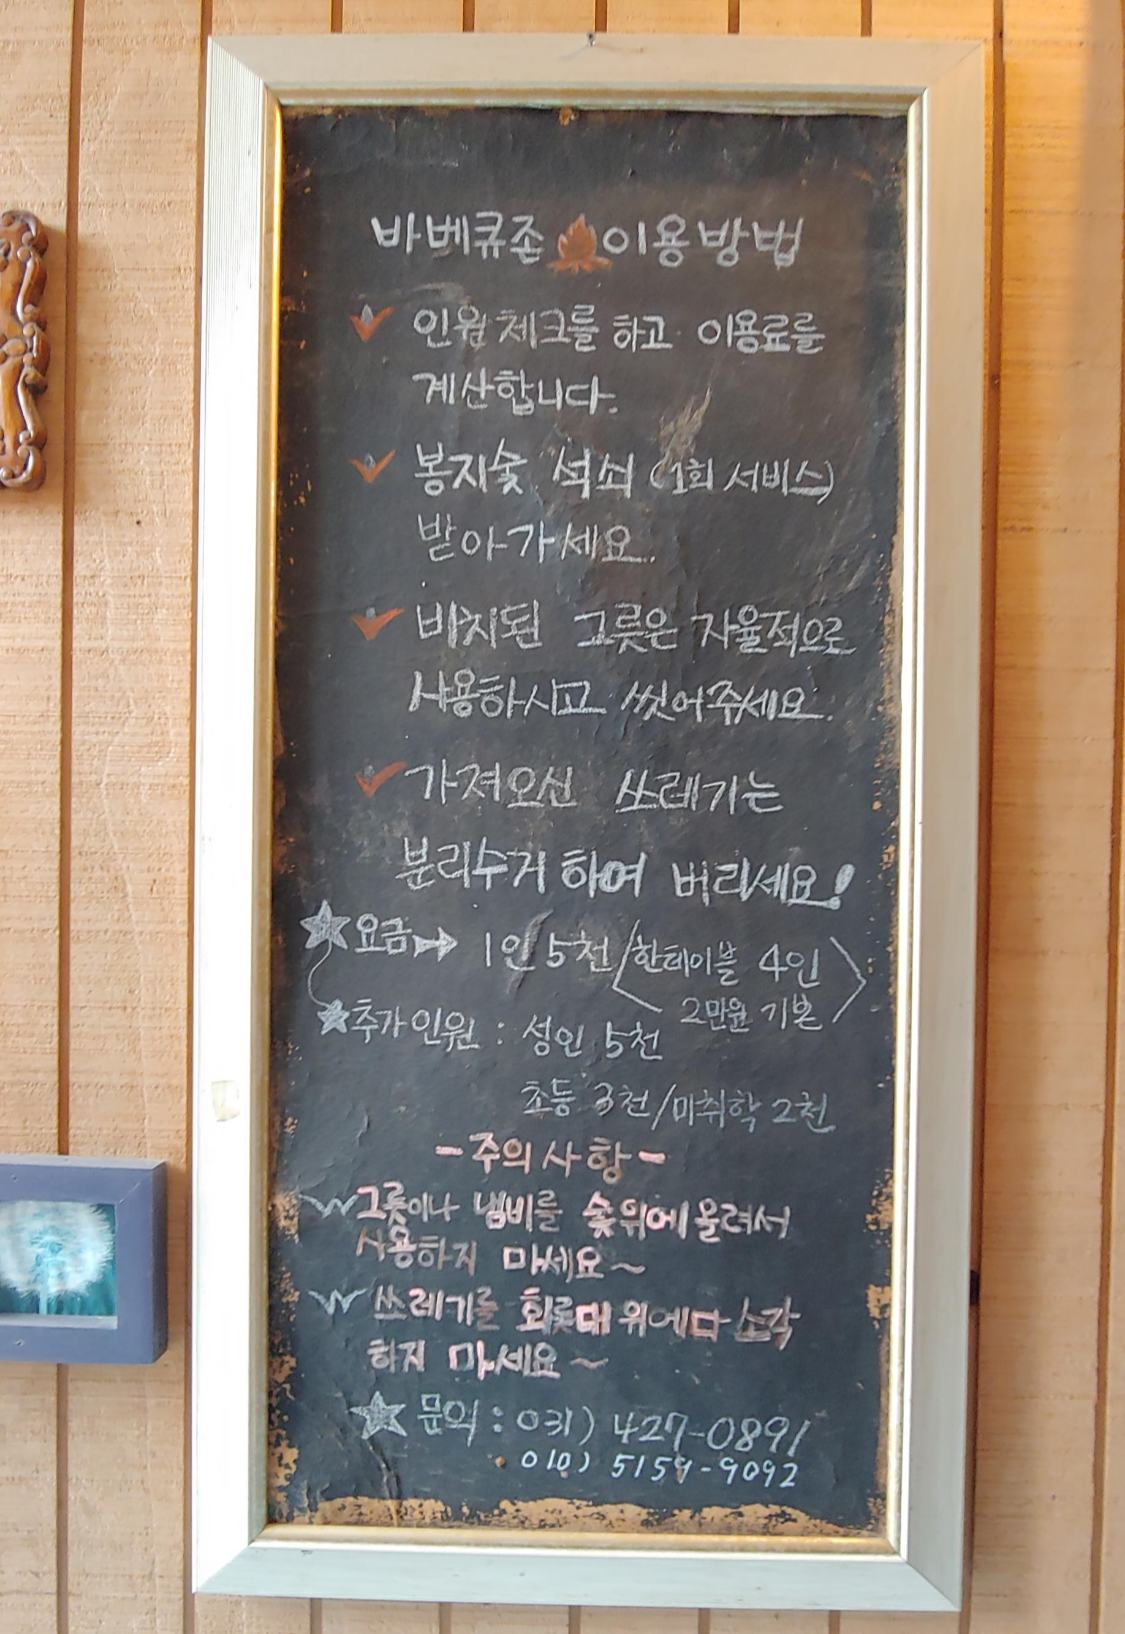 바베큐존 이용방법
인원 체크를 하고 이용료를
계산합니다.
봉지숯 석쇠 (1회 서비스)
받아가세요.
비치된 그릇은 자율적으로
사용하시고 씻어주세요.
가져오신 쓰레기는
분리수거 하여 버리세요!
요금 → 1인 5천 / 한테이블 4인
2만원 기본
추가인원 : 성인 5천
초등 3천/미취학 2천
-주의사항-
그릇이나 냄비를 숯위에 올려서
사용하지 마세요~
쓰레기를 화롯대 위에다 소각
하지 마세요~
문의 : 031) 427-0891
010) 5159-9092